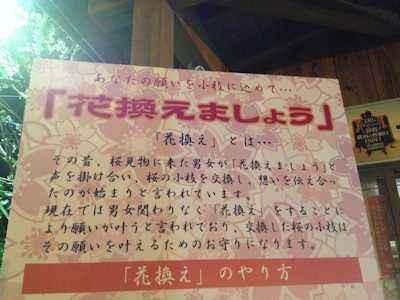 あなたの願いを小枝に込めて…
「花換えましょう」
「花換え」とは…
その昔、桜見物に来た男女が「花換えましょう」と
声を掛け合い、桜の小枝を交換し、想いを伝え合っ
たのが始まりと言われています。
現在では男女関わりなく「花換え」をすることに
より願いが叶うと言われており、交換した桜の小枝は
その願いを叶えるためのお守りになります。
「花換え」のやり方